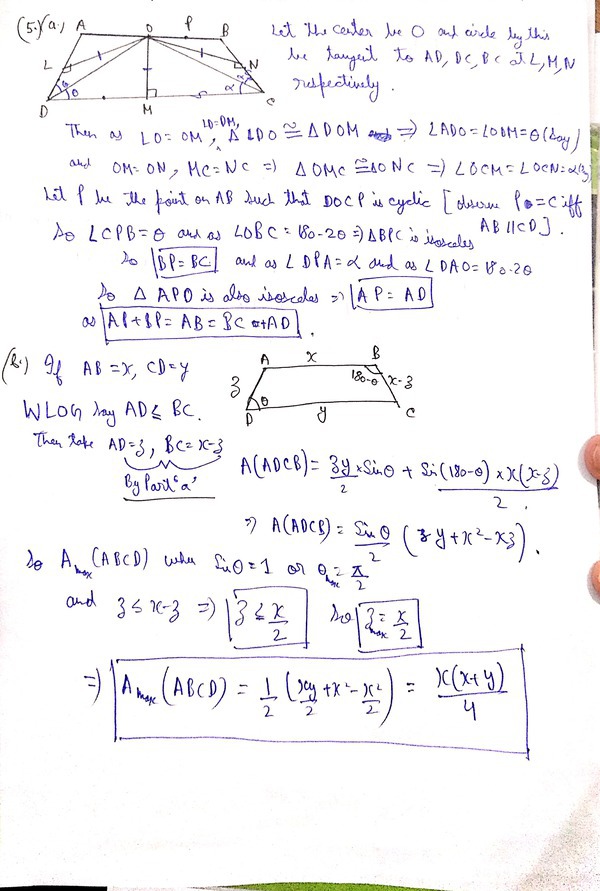 (5.)(a.)
A O P B
L N
D θ θ M α α C
Let the center be O and circle by this
be tangent to AD, DC, BC at L, M, N
respectively.
LD=DM,
Then as LO=OM, △LDO ≅ △DOM => ∠ADO=∠ODM=θ(say)
and OM=ON, MC=NC => △OMC ≅ △ONC => ∠OCM=∠OCN=α
Let P be the point on AB such that DOCP is cyclic [observe iff
AB||CD].
So ∠CPB=θ and as ∠OBC=180-2θ => △BPC is isosceles
So BP=BC and as ∠DPA=α and as ∠DAO=180-2θ
So △APD is also isosceles => AP=AD
as AP+BP=AB=BC+AD.
(b.) If AB=x, CD=y
A x B
z 180-θ x-z
D θ y C
WLOG say AD≤BC.
Then take AD=z, BC=x-z
By Part 'a'
A(ADCB)= zy/2 × Sinθ + Sin(180-θ) × x(x-z)/2.
=> A(ADCB) = Sinθ/2 (zy+x²-xz).
So A_max(ABCD) when Sinθ=1 or θ_max=π/2
and z≤x-z => z≤x/2 So z_max=x/2
=> A_max(ABCD) = 1/2 (xy/2+x²-x²/2) = x(x+y)/4